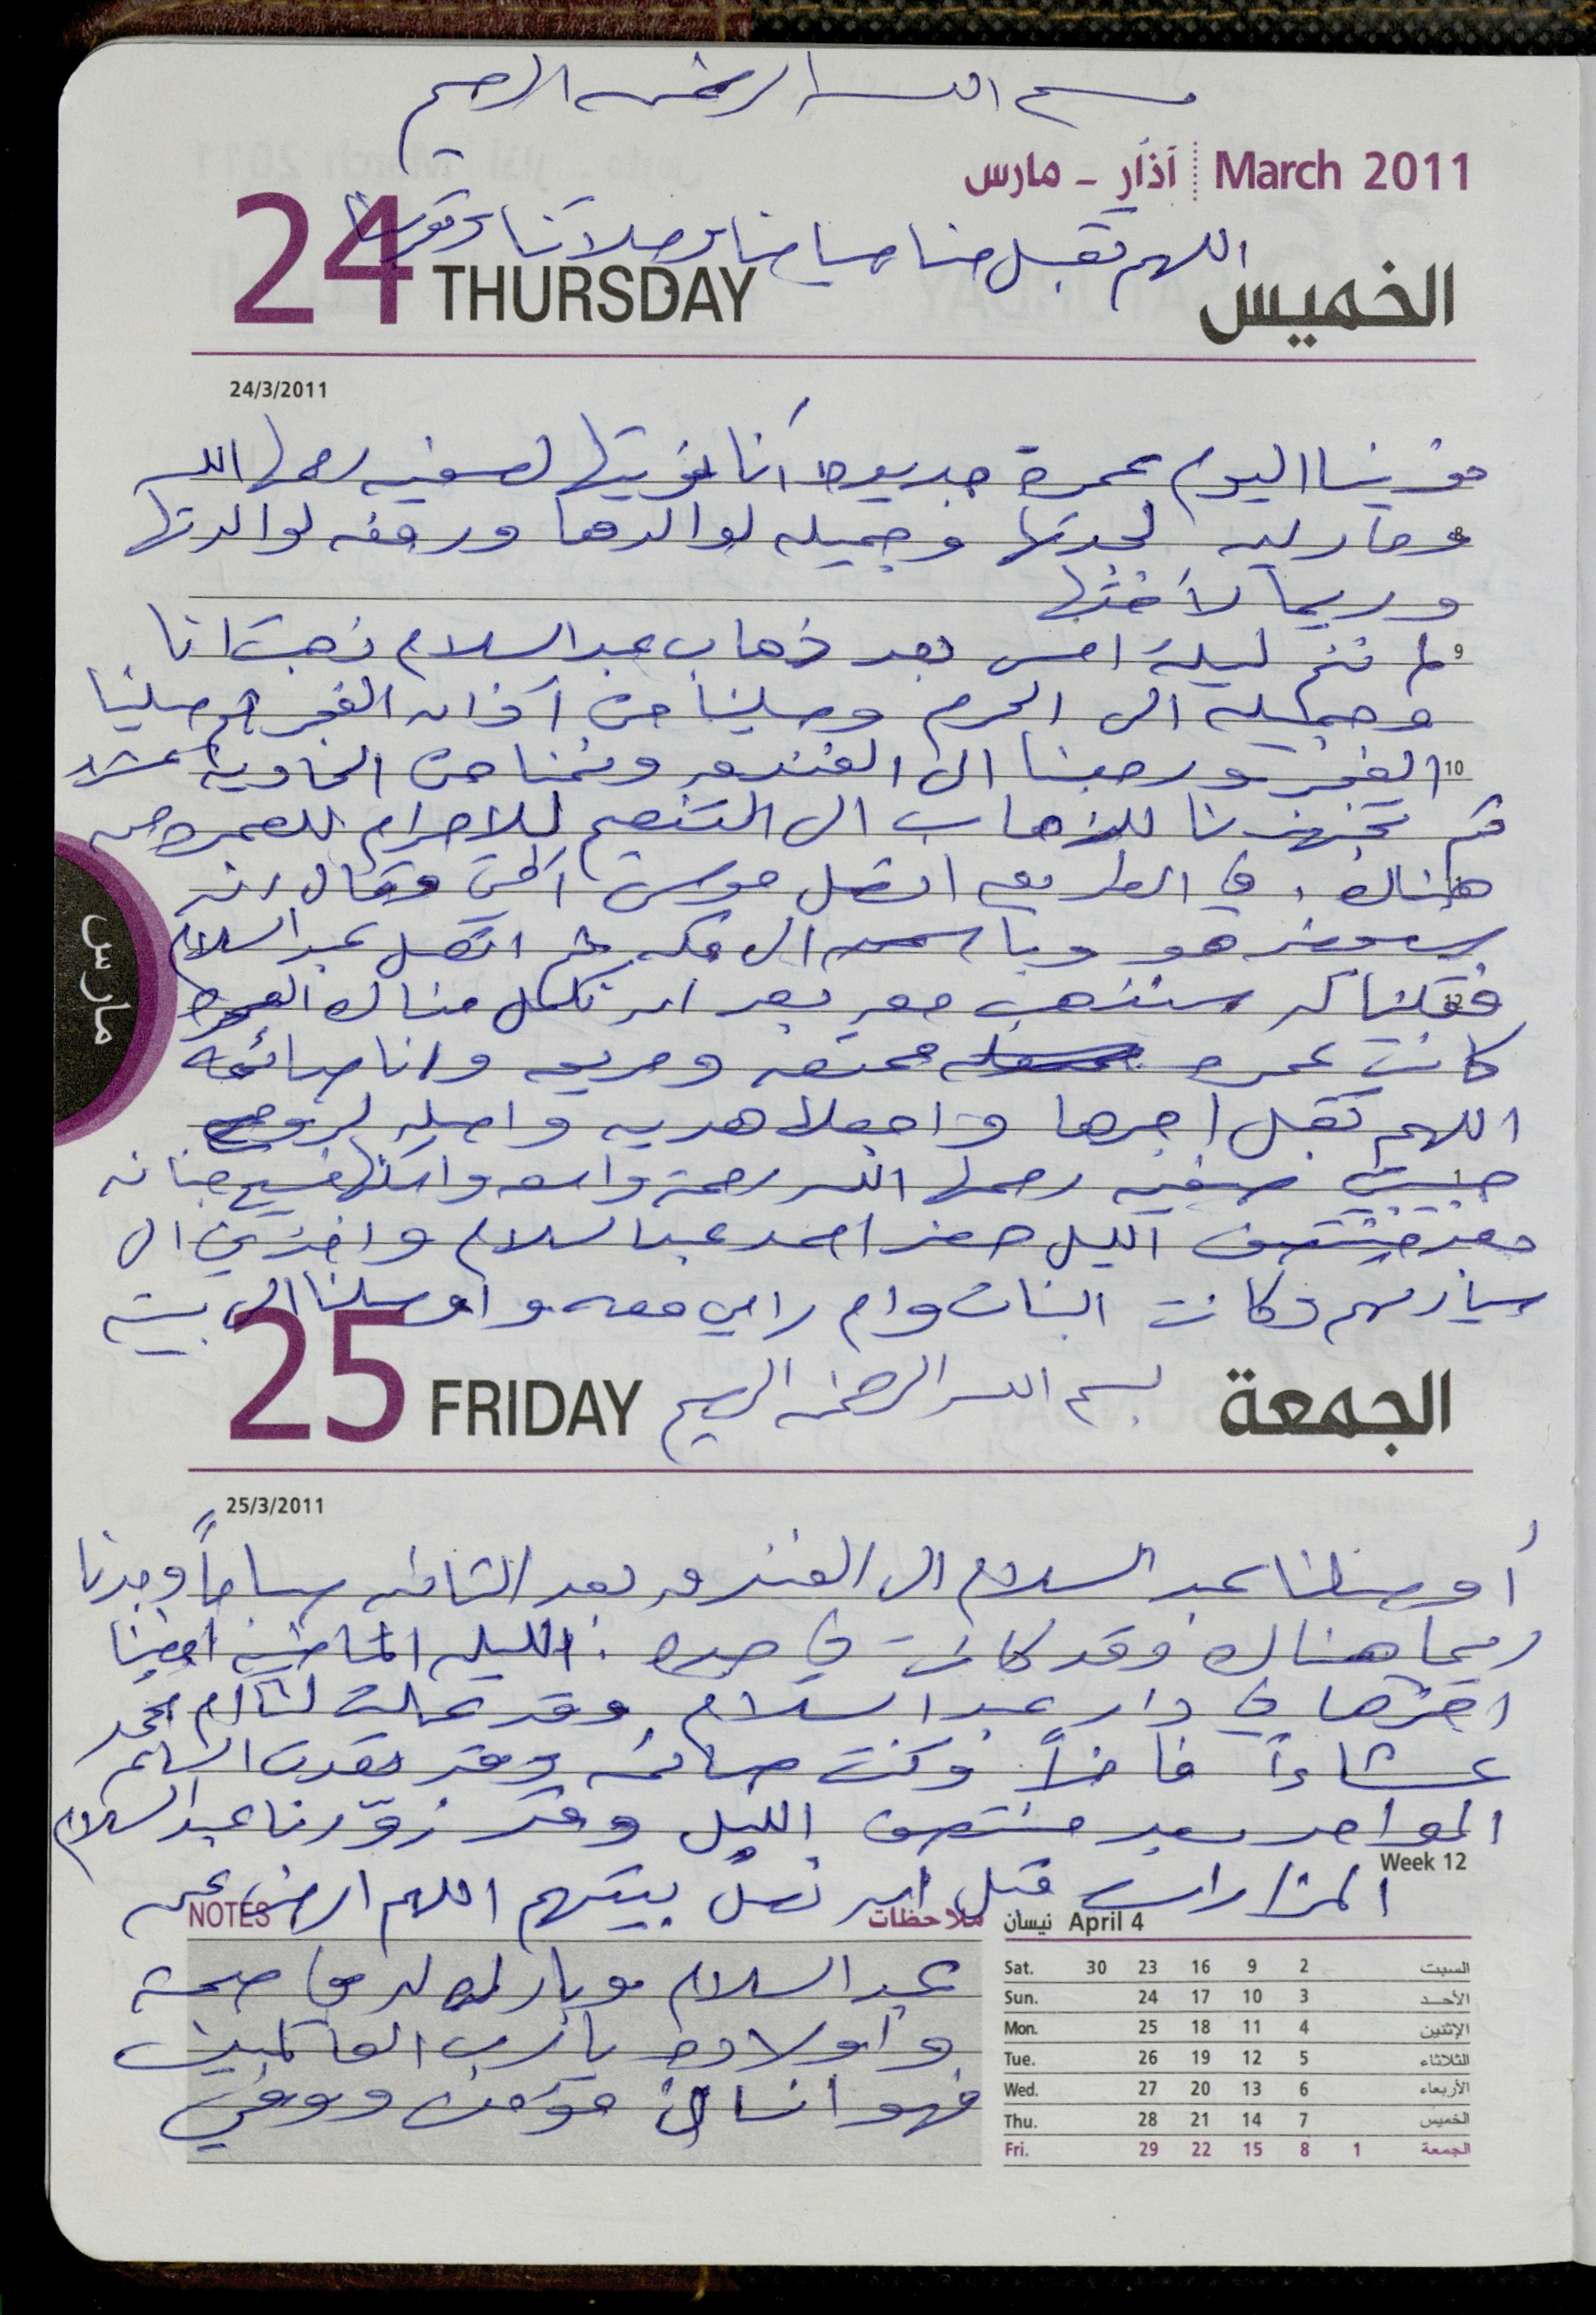 بسم الله الرحمن الرحيم
March 2011 آذار - مارس
اللهم تقبل منا صيامنا وصلاتنا وتقربنا
24 THURSDAY الخميس
24/3/2011
نوينا اليوم عمرة جديده أنا نويتها لصفيه رحمها الله
وماريه لجدتها وجميله لوالدها ورفقه لوالدتها
8
وريما لأختها
لم ننم ليلة امس بعد ذهاب عبد السلام ذهبت انا
9
وجميله الى الحرم وصلينا من آذان الفجر ثم صلينا
الفجر ورجعنا الى الفندق ونمنا من الحادية عشر
10
ثم تجهزنا للذهاب الى التنعيم للاحرام للعمره من
هناك، في الطريق اتصل موسى أخي وقال انه
سيحضر هو وباسمه الى مكه ثم اتصل عبد السلام
فقلنا له سنذهب معه بعد ان نكمل مناسك العمره
12
كانت عمره ممتعه ومريحه وانا صائمه
اللهم تقبل اجرها واجعلها هديه واصله لروح
حبيبتي صفيه رحمها الله رحمة واسعه واسكنها فسيح جنانه
1
بعد منتصف الليل حضر احمد عبد السلام واخذني الى
سيارتهم وكانت البنات وام رامي معه واوصلنا الى بيته
25 FRIDAY بسم الله الرحمن الرحيم الجمعة
25/3/2011
أوصلنا عبد السلام الى الفندق بعد الثانيه صباحاً وجدنا
ريما هناك وقد كانت في جده. الليله الماضيه امضينا
اخرها في دار عبد السلام وقد عملت لنا ام محمد
عشاءاً فاخراً وكنت صائمه وقد بعد
الواحد بعد منتصف الليل وقد زوّرنا عبد السلام
المزارات قبل ان نصل بيتهم اللهم ارض عن
Week 12
NOTES ملاحظات
عبد السلام وبارك له في صحته
واولاده يا رب العالمين
فهو انسان مؤمن ووفي
نيسان April 4
Sat. 30 23 16 9 2 السبت
Sun. 24 17 10 3 الأحــد
Mon. 25 18 11 4 الإثنين
Tue. 26 19 12 5 الثلاثاء
Wed. 27 20 13 6 الأربعاء
Thu. 28 21 14 7 الخميس
Fri. 29 22 15 8 1 الجمعة
مارس